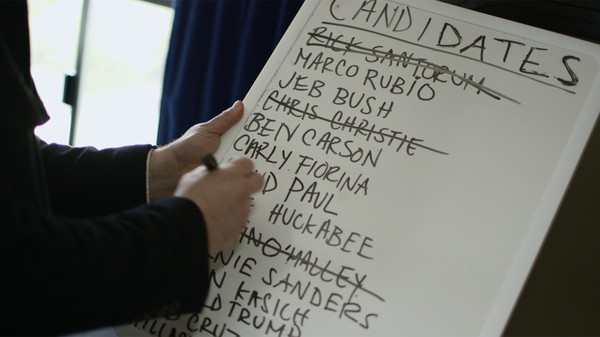 CANDIDATES
RICK SANTORUM
MARCO RUBIO
JEB BUSH
CHRIS CHRISTIE
BEN CARSON
CARLY FIORINA
PAUL
HUCKABEE
O'MALLEY
SANDERS
KASICH
TRUMP
CRUZ